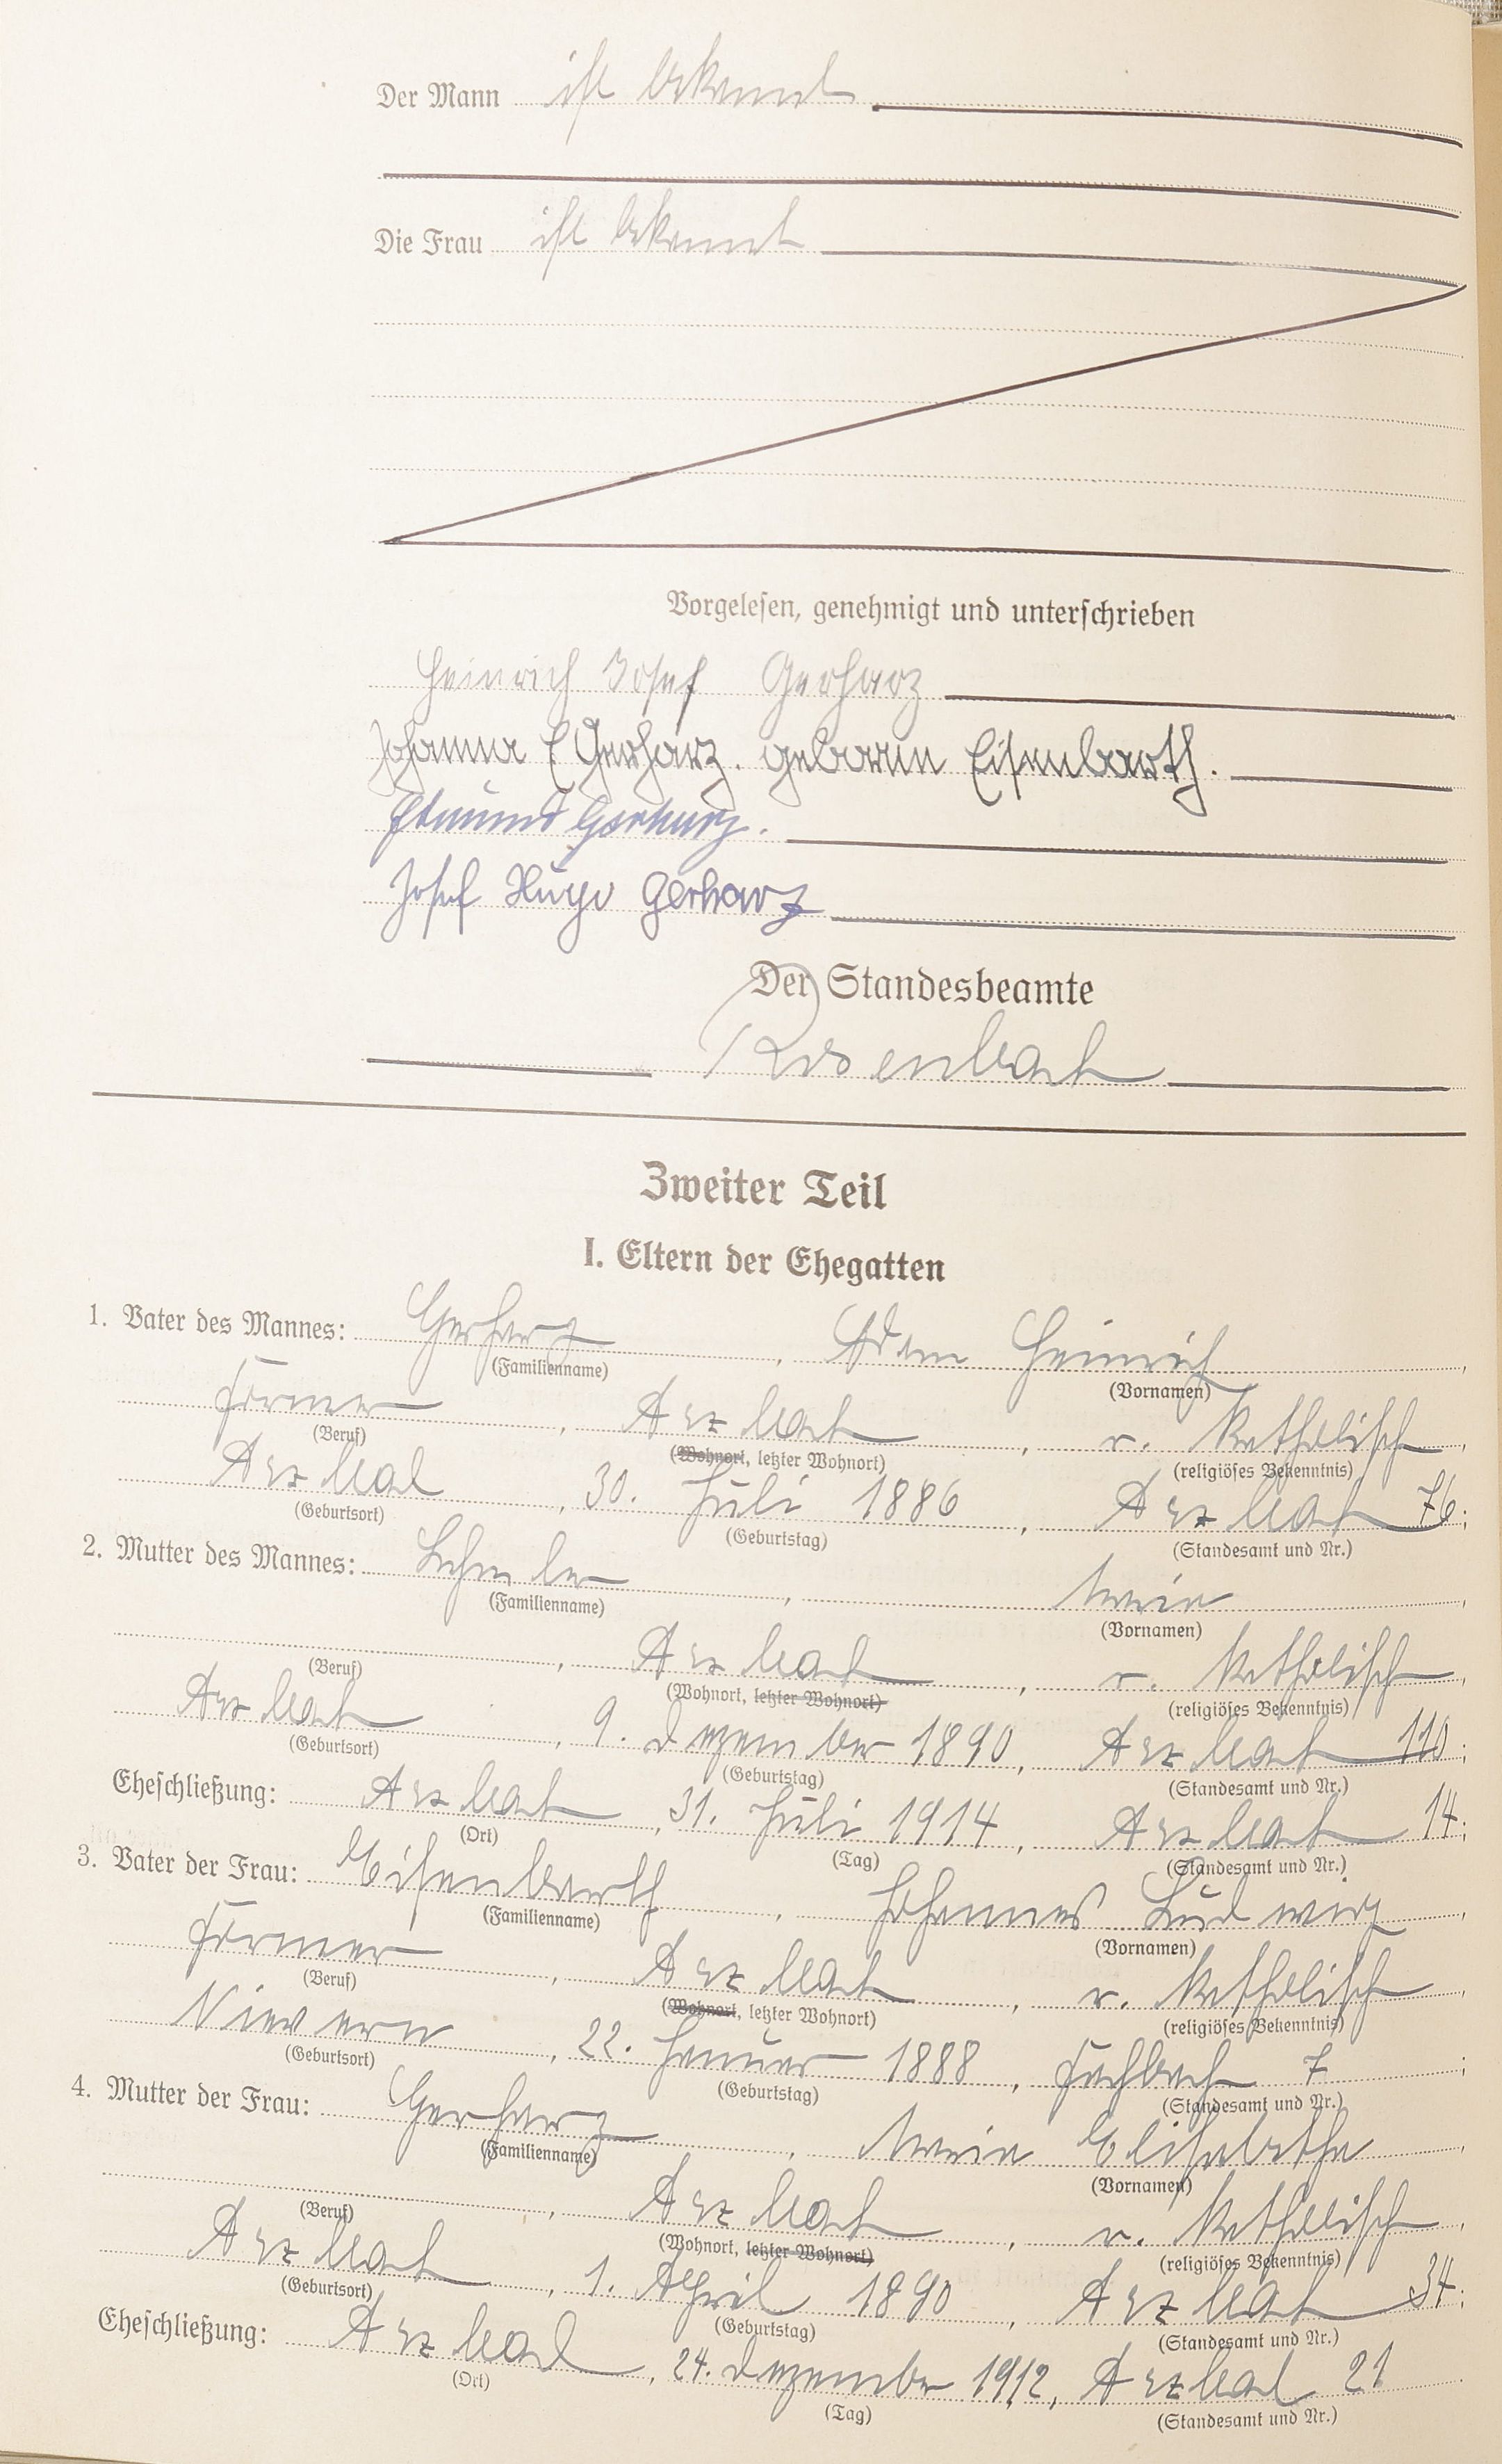 Der Mann ist bekannt
Die Frau ist bekannt
Vorgelesen, genehmigt und unterschrieben
Heinrich Josef Gerharz
Johanna E Gerharz. geboren Eisenbarth.
Edmund Gerharz.
Josef Hugo Gerharz
Der Standesbeamte
Zweiter Teil
I. Eltern der Ehegatten
1. Vater des Mannes: Gerharz, Adam Heinrich,
(Familienname) (Vornamen)
Former, Arzbach, r. katholisch,
(Beruf) (Wohnort, letzter Wohnort) (religiöses Bekenntnis)
Arzbach, 30. Juli 1886, Arzbach 76;
(Geburtsort) (Geburtstag) (Standesamt und Nr.)
2. Mutter des Mannes: , Maria,
(Familienname) (Vornamen)
, Arzbach, r. katholisch,
(Beruf) (Wohnort, letzter Wohnort) (religiöses Bekenntnis)
Arzbach, 9. Dezember 1890, Arzbach 110;
(Geburtsort) (Geburtstag) (Standesamt und Nr.)
Eheschließung: Arzbach, 31. Juli 1914, Arzbach 14;
(Ort) (Tag) (Standesamt und Nr.)
3. Vater der Frau: Eisenbarth, Johannes Ludwig,
(Familienname) (Vornamen)
Former, Arzbach, r. katholisch,
(Beruf) (Wohnort, letzter Wohnort) (religiöses Bekenntnis)
Nievern, 22. Januar 1888, Fachbach 7;
(Geburtsort) (Geburtstag) (Standesamt und Nr.)
4. Mutter der Frau: Gerharz, Maria Elisabetha,
(Familienname) (Vornamen)
, Arzbach, r. katholisch,
(Beruf) (Wohnort, letzter Wohnort) (religiöses Bekenntnis)
Arzbach, 1. April 1890, Arzbach 34;
(Geburtsort) (Geburtstag) (Standesamt und Nr.)
Eheschließung: Arzbach, 24. Dezember 1912, Arzbach 21
(Ort) (Tag) (Standesamt und Nr.)